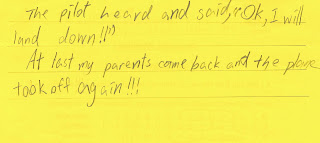 The pilot heard and said, "Ok, I will
land down!!"
At last my parents come back and the plane
took off again!!!